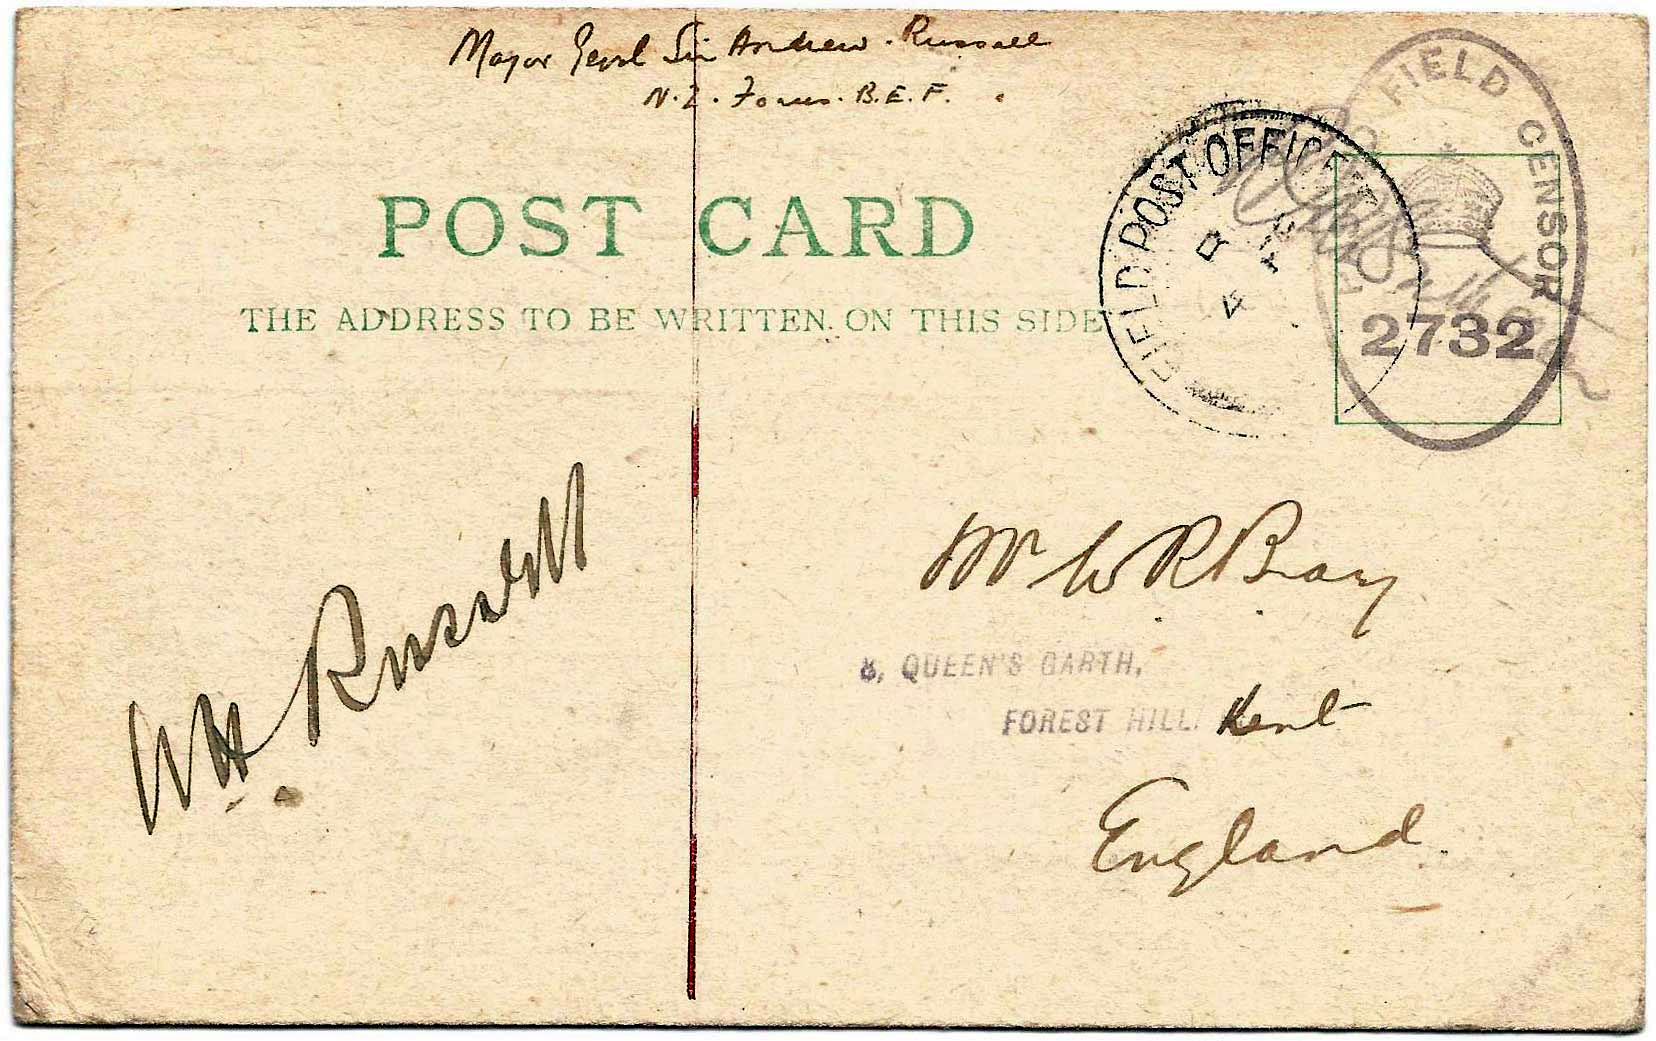 Major Genl Sir Andrew. Russell
N.Z. Forces. B.E.F.
FIELD CENSOR
2732
FIELD POST OFFICE
D
4
POST CARD
THE ADDRESS TO BE WRITTEN ON THIS SIDE
AH Russell
Mr W R Bray
8, QUEEN'S GARTH,
FOREST HILL. Kent
England